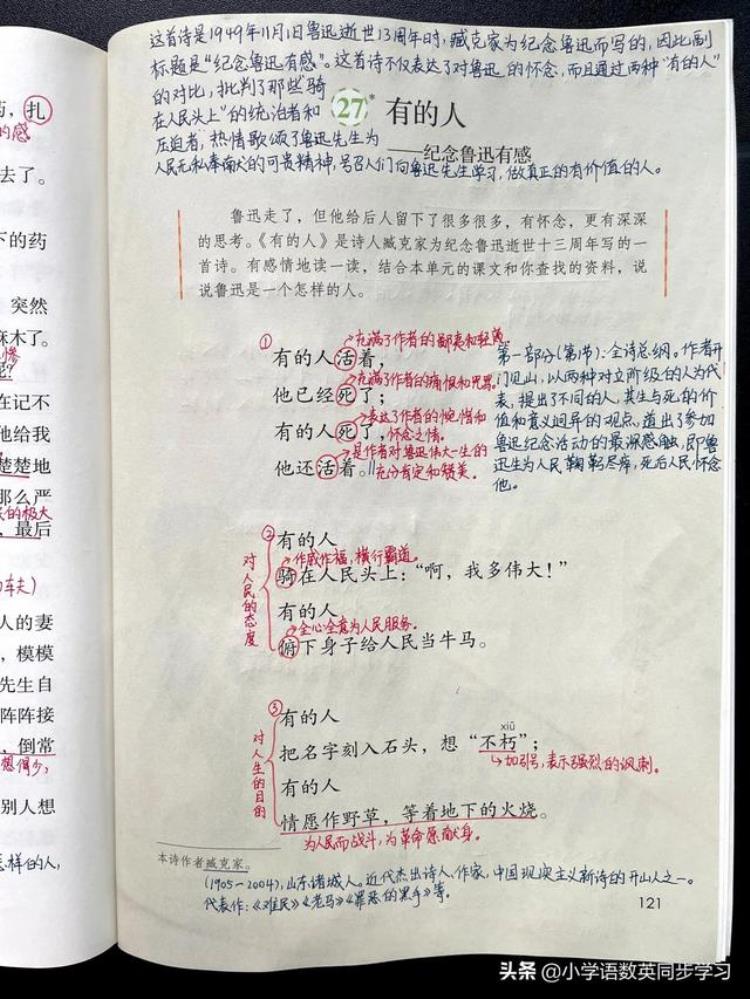 药，扎
的感
去了。
下的药
突然
麻木了。
惨
呢？
在记不
他给我
楚楚地
那么严
的极大
，最后
车夫）
人的妻
，模模
先生自
阵阵接
，倒常
想得少，
别人想
怎样的人，
这首诗是1949年11月1日鲁迅逝世13周年时，臧克家为纪念鲁迅而写的，因此副
标题是“纪念鲁迅有感”。这首诗不仅表达了对鲁迅的怀念，而且通过两种“有的人”
的对比，批判了那些“骑
在人民头上”的统治者和
压迫者，热情歌颂了鲁迅先生为
人民无私奉献的可贵精神，号召人们向鲁迅先生学习，做真正的有价值的人。
27* 有的人
——纪念鲁迅有感
鲁迅走了，但他给后人留下了很多很多，有怀念，更有深深
的思考。《有的人》是诗人臧克家为纪念鲁迅逝世十三周年写的一
首诗。有感情地读一读，结合本单元的课文和你查找的资料，说
说鲁迅是一个怎样的人。
①
充满了作者的鄙夷和轻蔑
有的人活着，
充满了作者的痛恨和咒骂。
他已经死了；
表达了作者的惋惜和
有的人死了，怀念之情。
是作者对鲁迅伟大一生的
他还活着。‖充分肯定和赞美。
第一部分(第1节)：全诗总纲。作者开
门见山，以两种对立阶级的人为代
表，提出了不同的人，其生与死的价
值和意义迥异的观点，道出了参加
鲁迅纪念活动的最深感触，即鲁
迅生为人民鞠躬尽瘁，死后人民怀念
他。
②
对人民的态度
有的人
作威作福，横行霸道。
骑在人民头上：“啊，我多伟大！”
有的人
全心全意为人民服务。
俯下身子给人民当牛马。
③
对人生的目的
有的人
xiǔ
把名字刻入石头，想“不朽”；
加引号，表示强烈的讽刺。
有的人
情愿作野草，等着地下的火烧。
为人民而战斗，为革命愿献身。
本诗作者臧克家。
(1905-2004)，山东诸城人。近代杰出诗人、作家，中国现实主义新诗的开山人之一。
代表作：《难民》《老马》《罪恶的黑手》等。
121
头条 @小学语数英同步学习